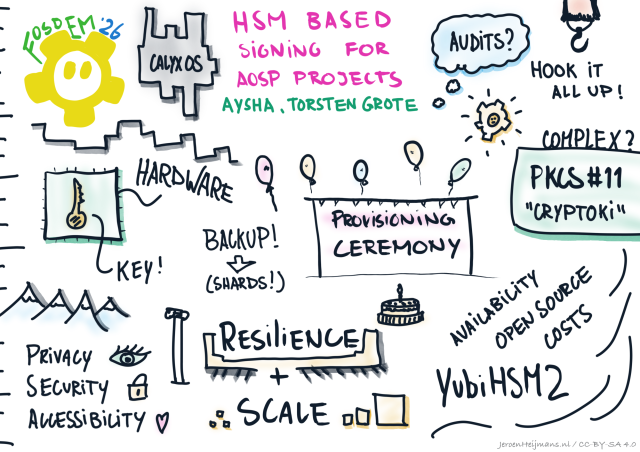 FOSDEM '26
CALYX OS
HSM BASED
SIGNING FOR
AOSP PROJECTS
AYSHA, TORSTEN GROTE
AUDITS?
HOOK IT
ALL UP!
COMPLEX?
PKCS#11
"CRYPTOKI"
HARDWARE
KEY!
BACKUP!
(SHARDS!)
PROVISIONING
CEREMONY
AVAILABILITY
OPEN SOURCE
COSTS
YubiHSM2
PRIVACY
SECURITY
ACCESSIBILITY
RESILIENCE
+
SCALE
JeroenHeijmans.nl / CC-BY-SA 4.0